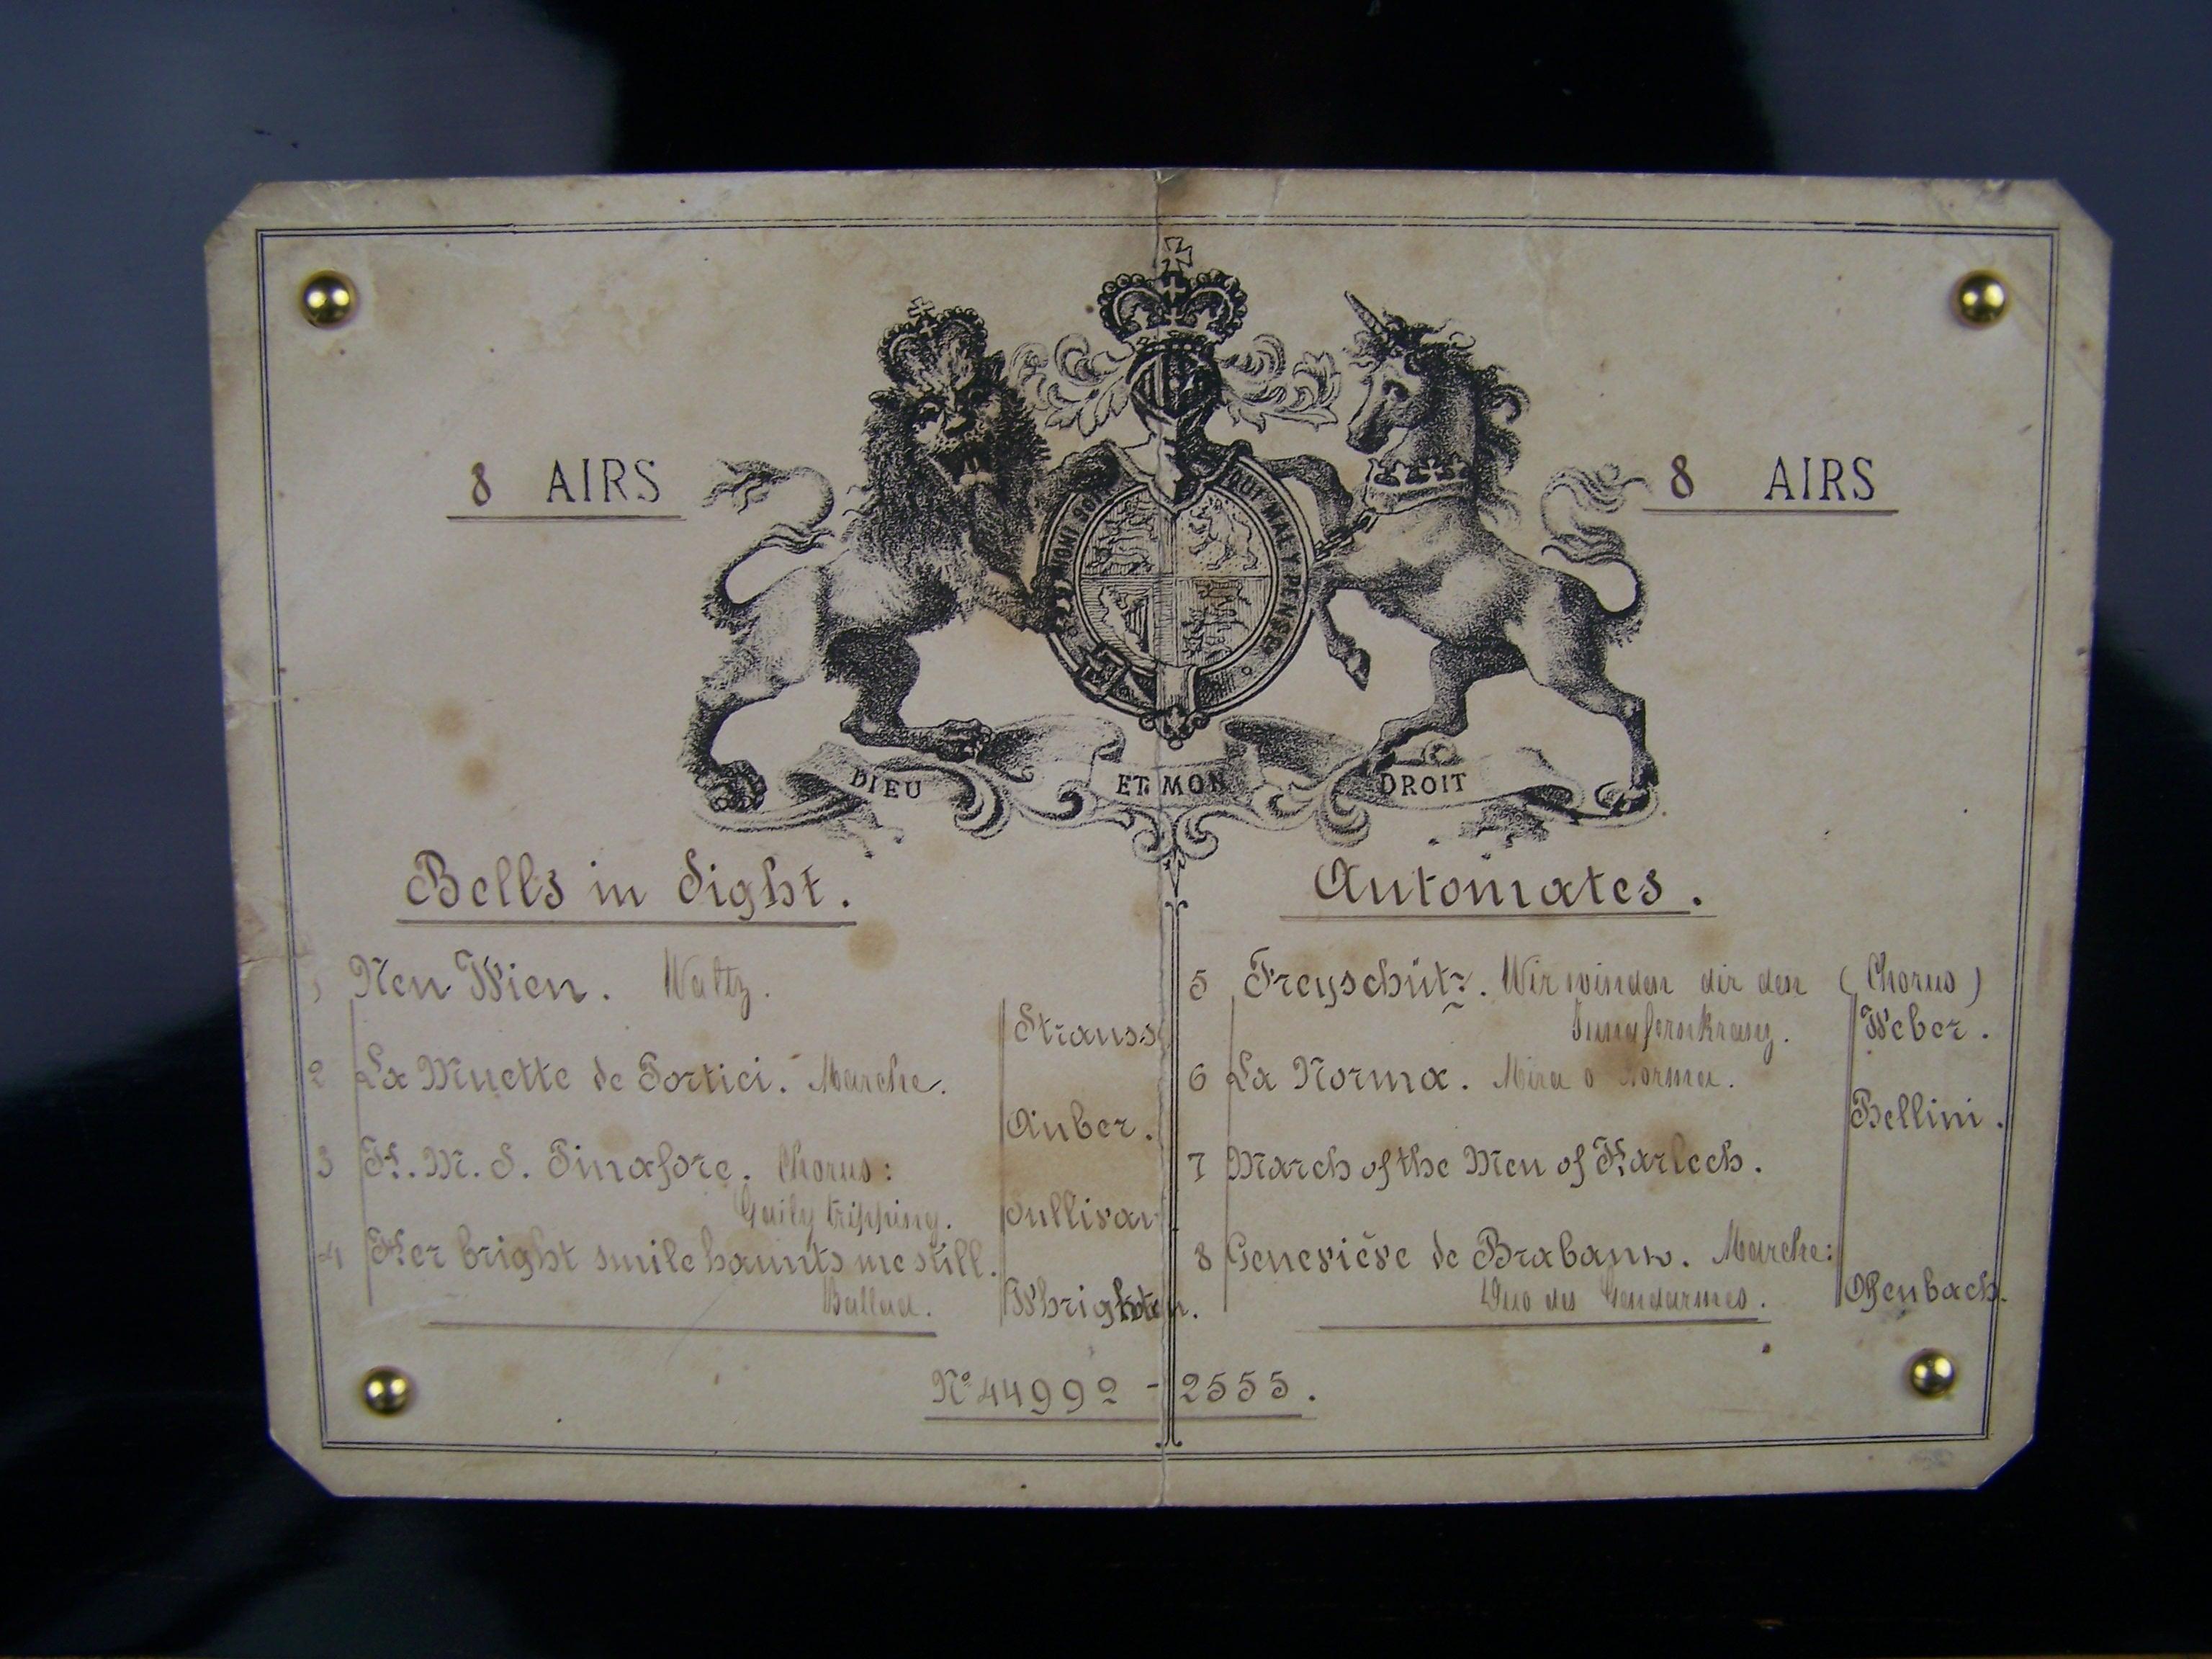 8 AIRS
8 AIRS
HONI SOIT QUI MAL Y PENSE
DIEU ET MON DROIT
Bells in Sight.
1 Neu Wien. Waltz.
Strauss
2 La Muette de Portici. Marche.
Auber.
3 H. M. S. Pinafore. Chorus:
Gaily tripping.
Sullivan
4 Her bright smile haunts me still.
Ballad.
Whrighten.
Automates.
5 Freyschütz. Wir winden dir den (Chorus)
Jungfernkranz.
Weber.
6 La Norma. Mira o Norma.
Bellini.
7 March of the Men of Harlech.
8 Geneviève de Brabant. Marche:
Duo des Gendarmes.
Offenbach.
No 44992 - 2555.